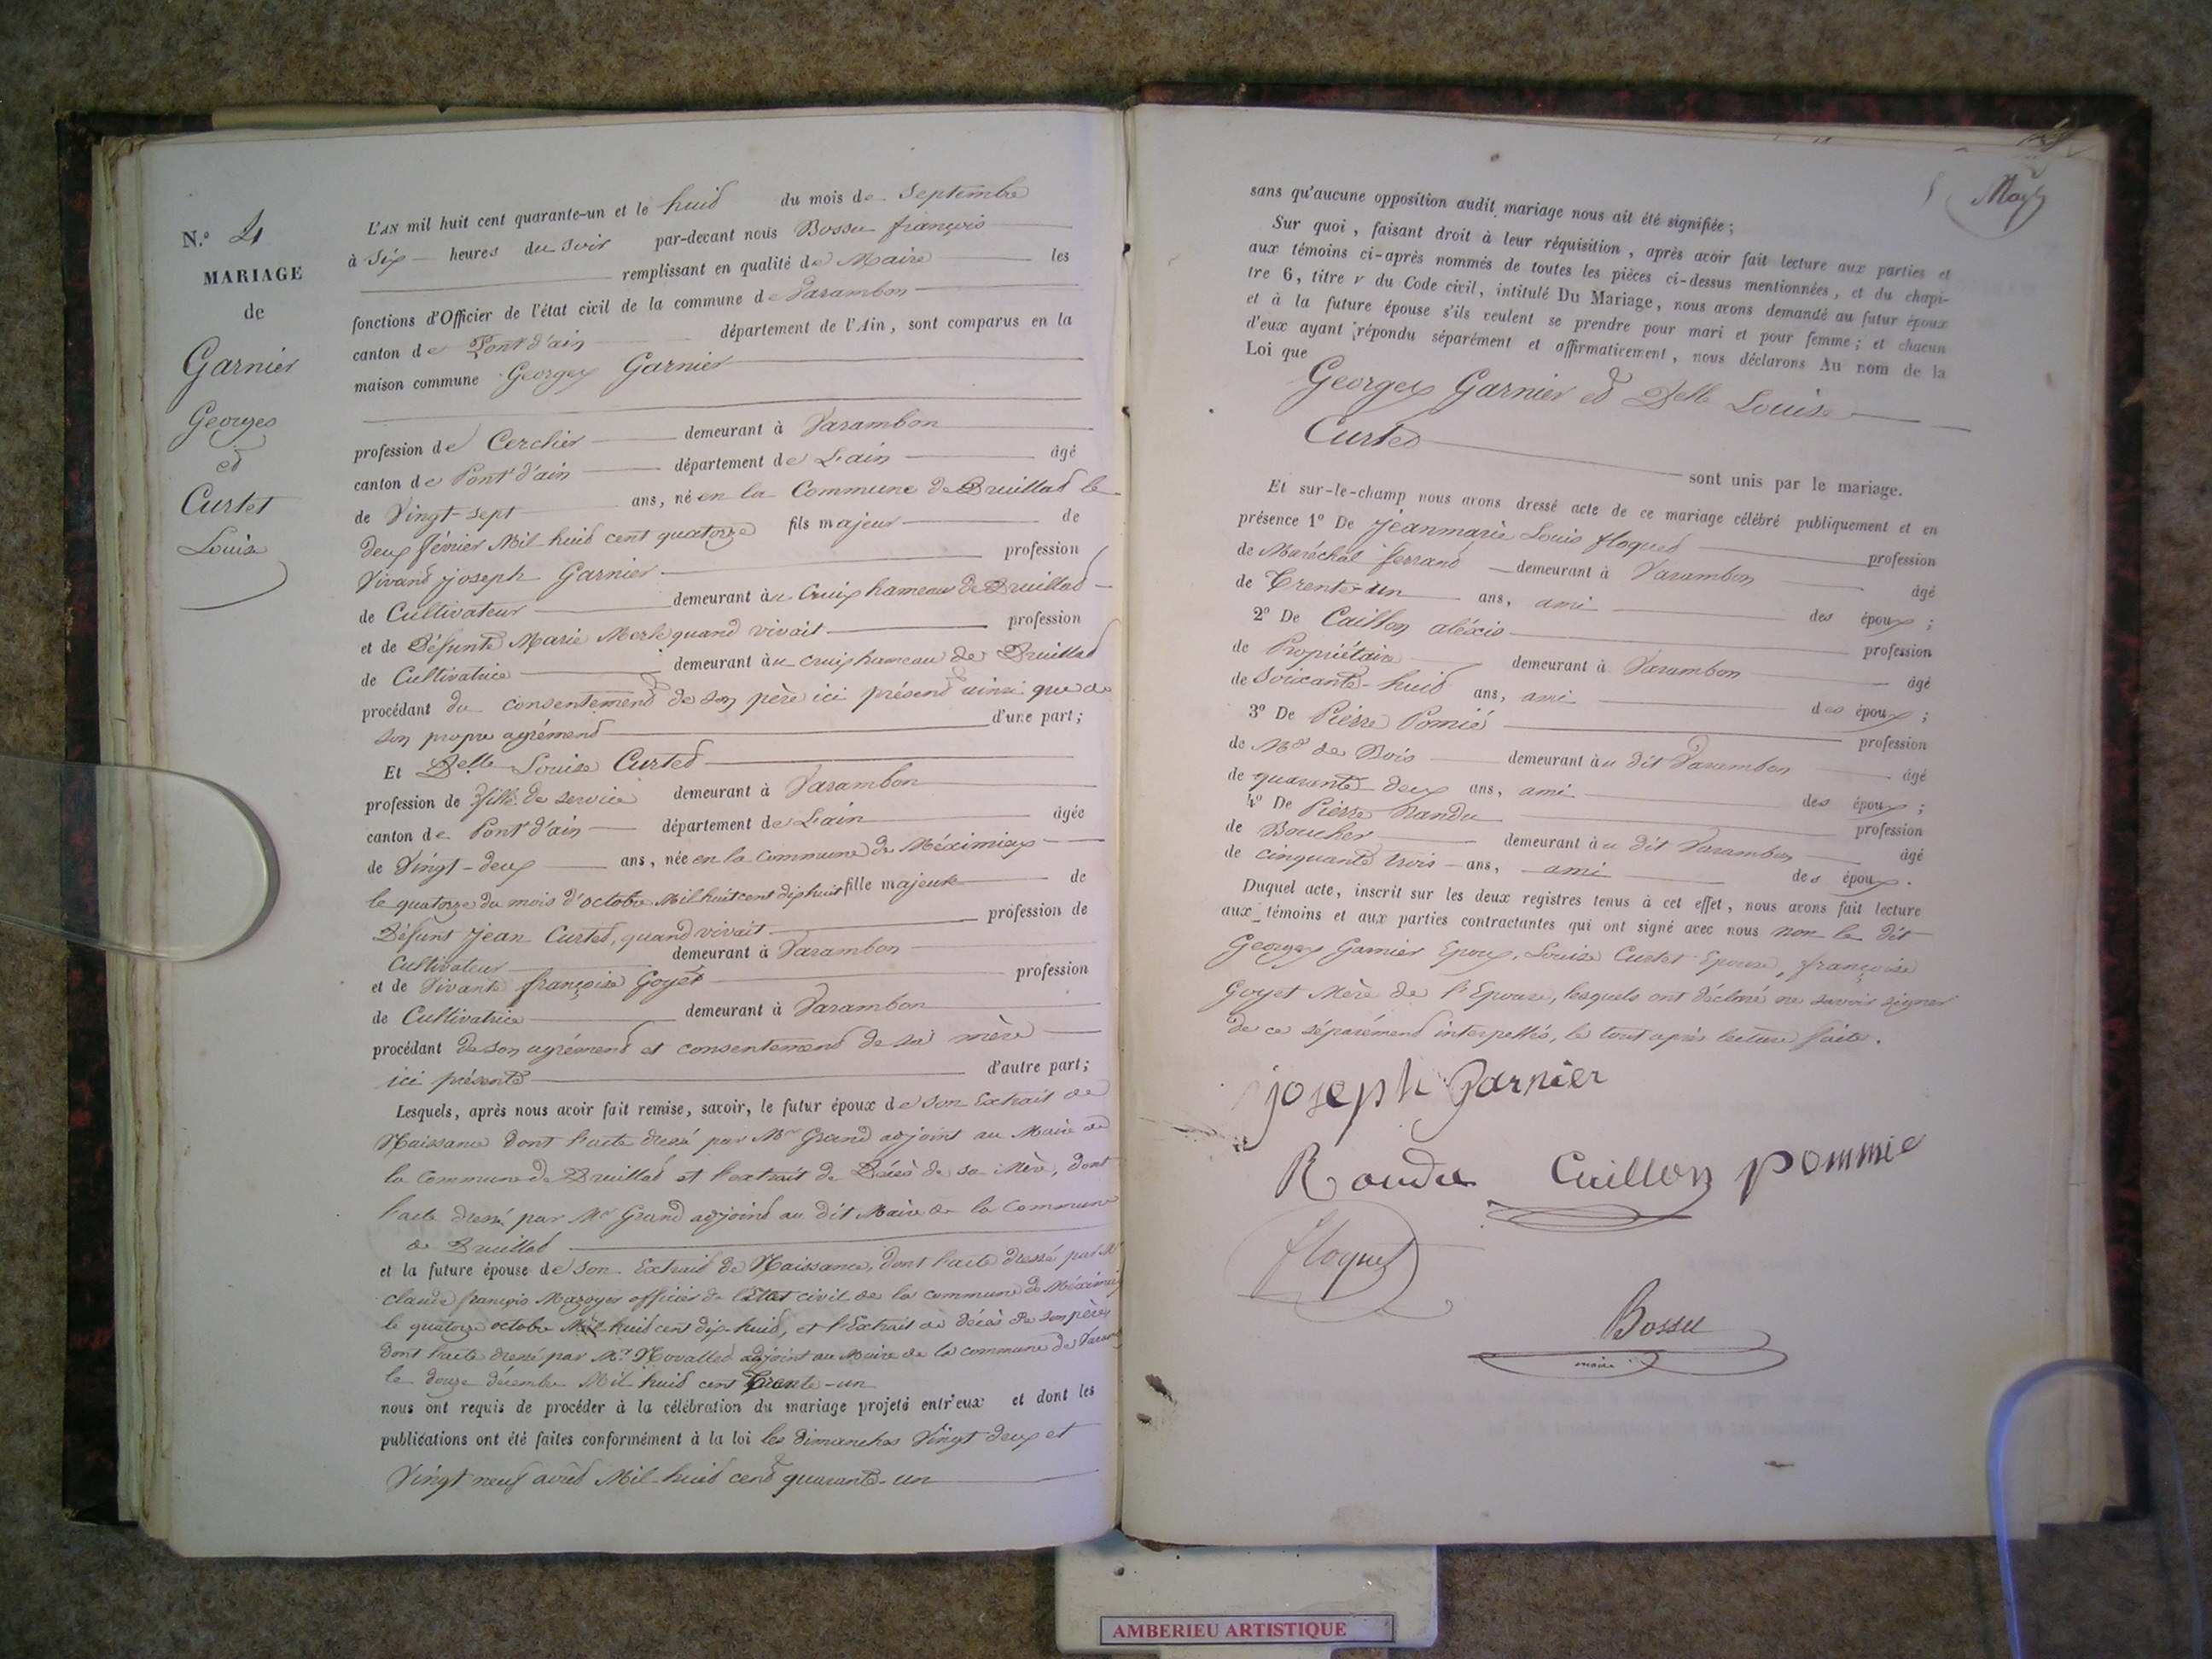 N.º 4
MARIAGE
de
Garnier
Georges
et
Curtet
Louise
L'AN mil huit cent quarante-un et le huit du mois de Septembre
à Six heures du Soir par-devant nous Bossu françois
remplissant en qualité de Maire les
fonctions d'Officier de l'état civil de la commune de Varambon
canton de Pont d'ain département de l'Ain, sont comparus en la
maison commune Georges Garnier
profession de Cerclier demeurant à Varambon
canton de Pont d'ain département de L'ain âgé
de Vingt-sept ans, né en la Commune de Druillat le
deux février Mil huit cent quatorze fils majeur de
Vivant joseph Garnier profession
de Cultivateur demeurant au Cruix hameau de Druillat
et de Défunte Marie Merle quand vivait profession
de Cultivatrice demeurant au cruix hameau de Druillat
procédant du consentement de son père ici présent ainsi que de
son propre agrément d'une part;
Et Delle Louise Curtet
profession de fille de service demeurant à Varambon
canton de Pont d'ain département de L'ain âgée
de Vingt-deux ans, née en la Commune de Méximieux
le quatorze du mois d'octobre Mil huit cent dix huit fille majeure de
Défunt Jean Curtet, quand vivait profession de
Cultivateur demeurant à Varambon
et de Vivante françoise Goyet profession
de Cultivatrice demeurant à Varambon
procédant de son agrément et consentement de sa mère
ici présente d'autre part;
Lesquels, après nous avoir fait remise, savoir, le futur époux de son Extrait de
Naissance dont l'acte dressé par Mr Grand adjoint au Maire de
la Commune de Druillat et l'extrait de Décès de sa Mère, dont
l'acte dressé par Mr Grand adjoint au dit Maire de la Commune
de Druillat
et la future épouse de son Extrait de Naissance, dont l'acte dressé par Mr
claude françois Mazoyer officier de l'Etat civil de la commune de Méximieux
le quatorze octobre Mil huit cent dix-huit, et l'Extrait de décès de son père
dont l'acte dressé par Mr Novallet adjoint au Maire de la commune de Varamb
le douze décembre Mil huit cent Trente-un
nous ont requis de procéder à la célébration du mariage projeté entr'eux et dont les
publications ont été faites conformément à la loi les dimanches Vingt deux et
Vingt neuf août Mil-huit cent quarante-un
sans qu'aucune opposition audit mariage nous ait été signifiée;
Sur quoi, faisant droit à leur réquisition, après avoir fait lecture aux parties et
aux témoins ci-après nommés de toutes les pièces ci-dessus mentionnées, et du chapi-
tre 6, titre v du Code civil, intitulé Du Mariage, nous avons demandé au futur époux
et à la future épouse s'ils veulent se prendre pour mari et pour femme; et chacun
d'eux ayant répondu séparément et affirmativement, nous déclarons Au nom de la
Loi que
Georges Garnier et Delle Louise
Curtet
sont unis par le mariage.
Et sur-le-champ nous avons dressé acte de ce mariage célébré publiquement et en
présence 1º De jeanmarie Louis floquet profession
de Maréchal ferrant demeurant à Varambon âgé
de Trente-un ans, ami des époux;
2º De Caillon aléxis profession
de Propriétaire demeurant à Varambon âgé
de Soixante-huit ans, ami des époux;
3º De Piérre Pomié profession
de Md de Bois demeurant au dit Varambon âgé
de quarante-deux ans, ami des époux;
4º De Piérre Randu profession
de Boucher demeurant au dit Varambon âgé
de cinquante trois ans, ami des époux.
Duquel acte, inscrit sur les deux registres tenus à cet effet, nous avons fait lecture
aux témoins et aux parties contractantes qui ont signé avec nous non le dit
Georges Garnier Epoux, Louise Curtet Epouse, françoise
Goyet Mère de l'Epouse, lesquels ont déclaré ne savoir signer
de ce séparément interpellés, le tout après lecture faite.
joseph Garnier
Roudu Cuillon pommie
floquet
Bossu
maire
AMBERIEU ARTISTIQUE